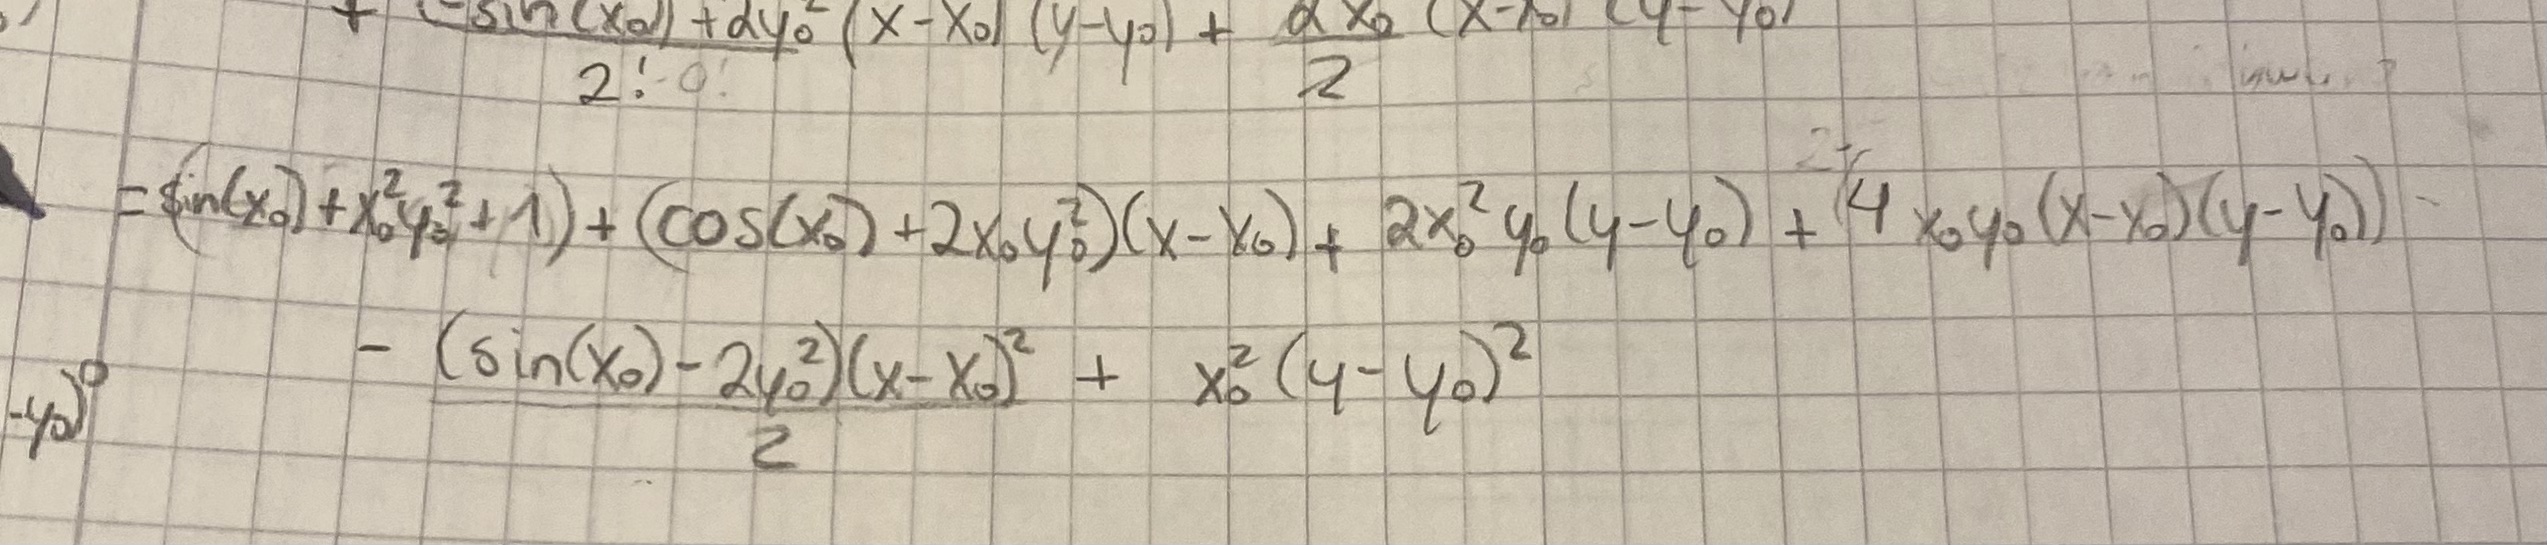 + (-sin(x₀)) + 2y₀² (x-x₀) (y-y₀) + 2x₀ (x-x₀) (y-y₀)
2! 0! 2
= (sin(x₀) + x₀²y₀² + 1) + (cos(x₀) + 2x₀y₀²)(x-x₀) + 2x₀²y₀(y-y₀) + (4x₀y₀(x-x₀)(y-y₀)) -
- (sin(x₀) - 2y₀²)(x-x₀)² + x₀²(y-y₀)²
2
-y₀)⁰